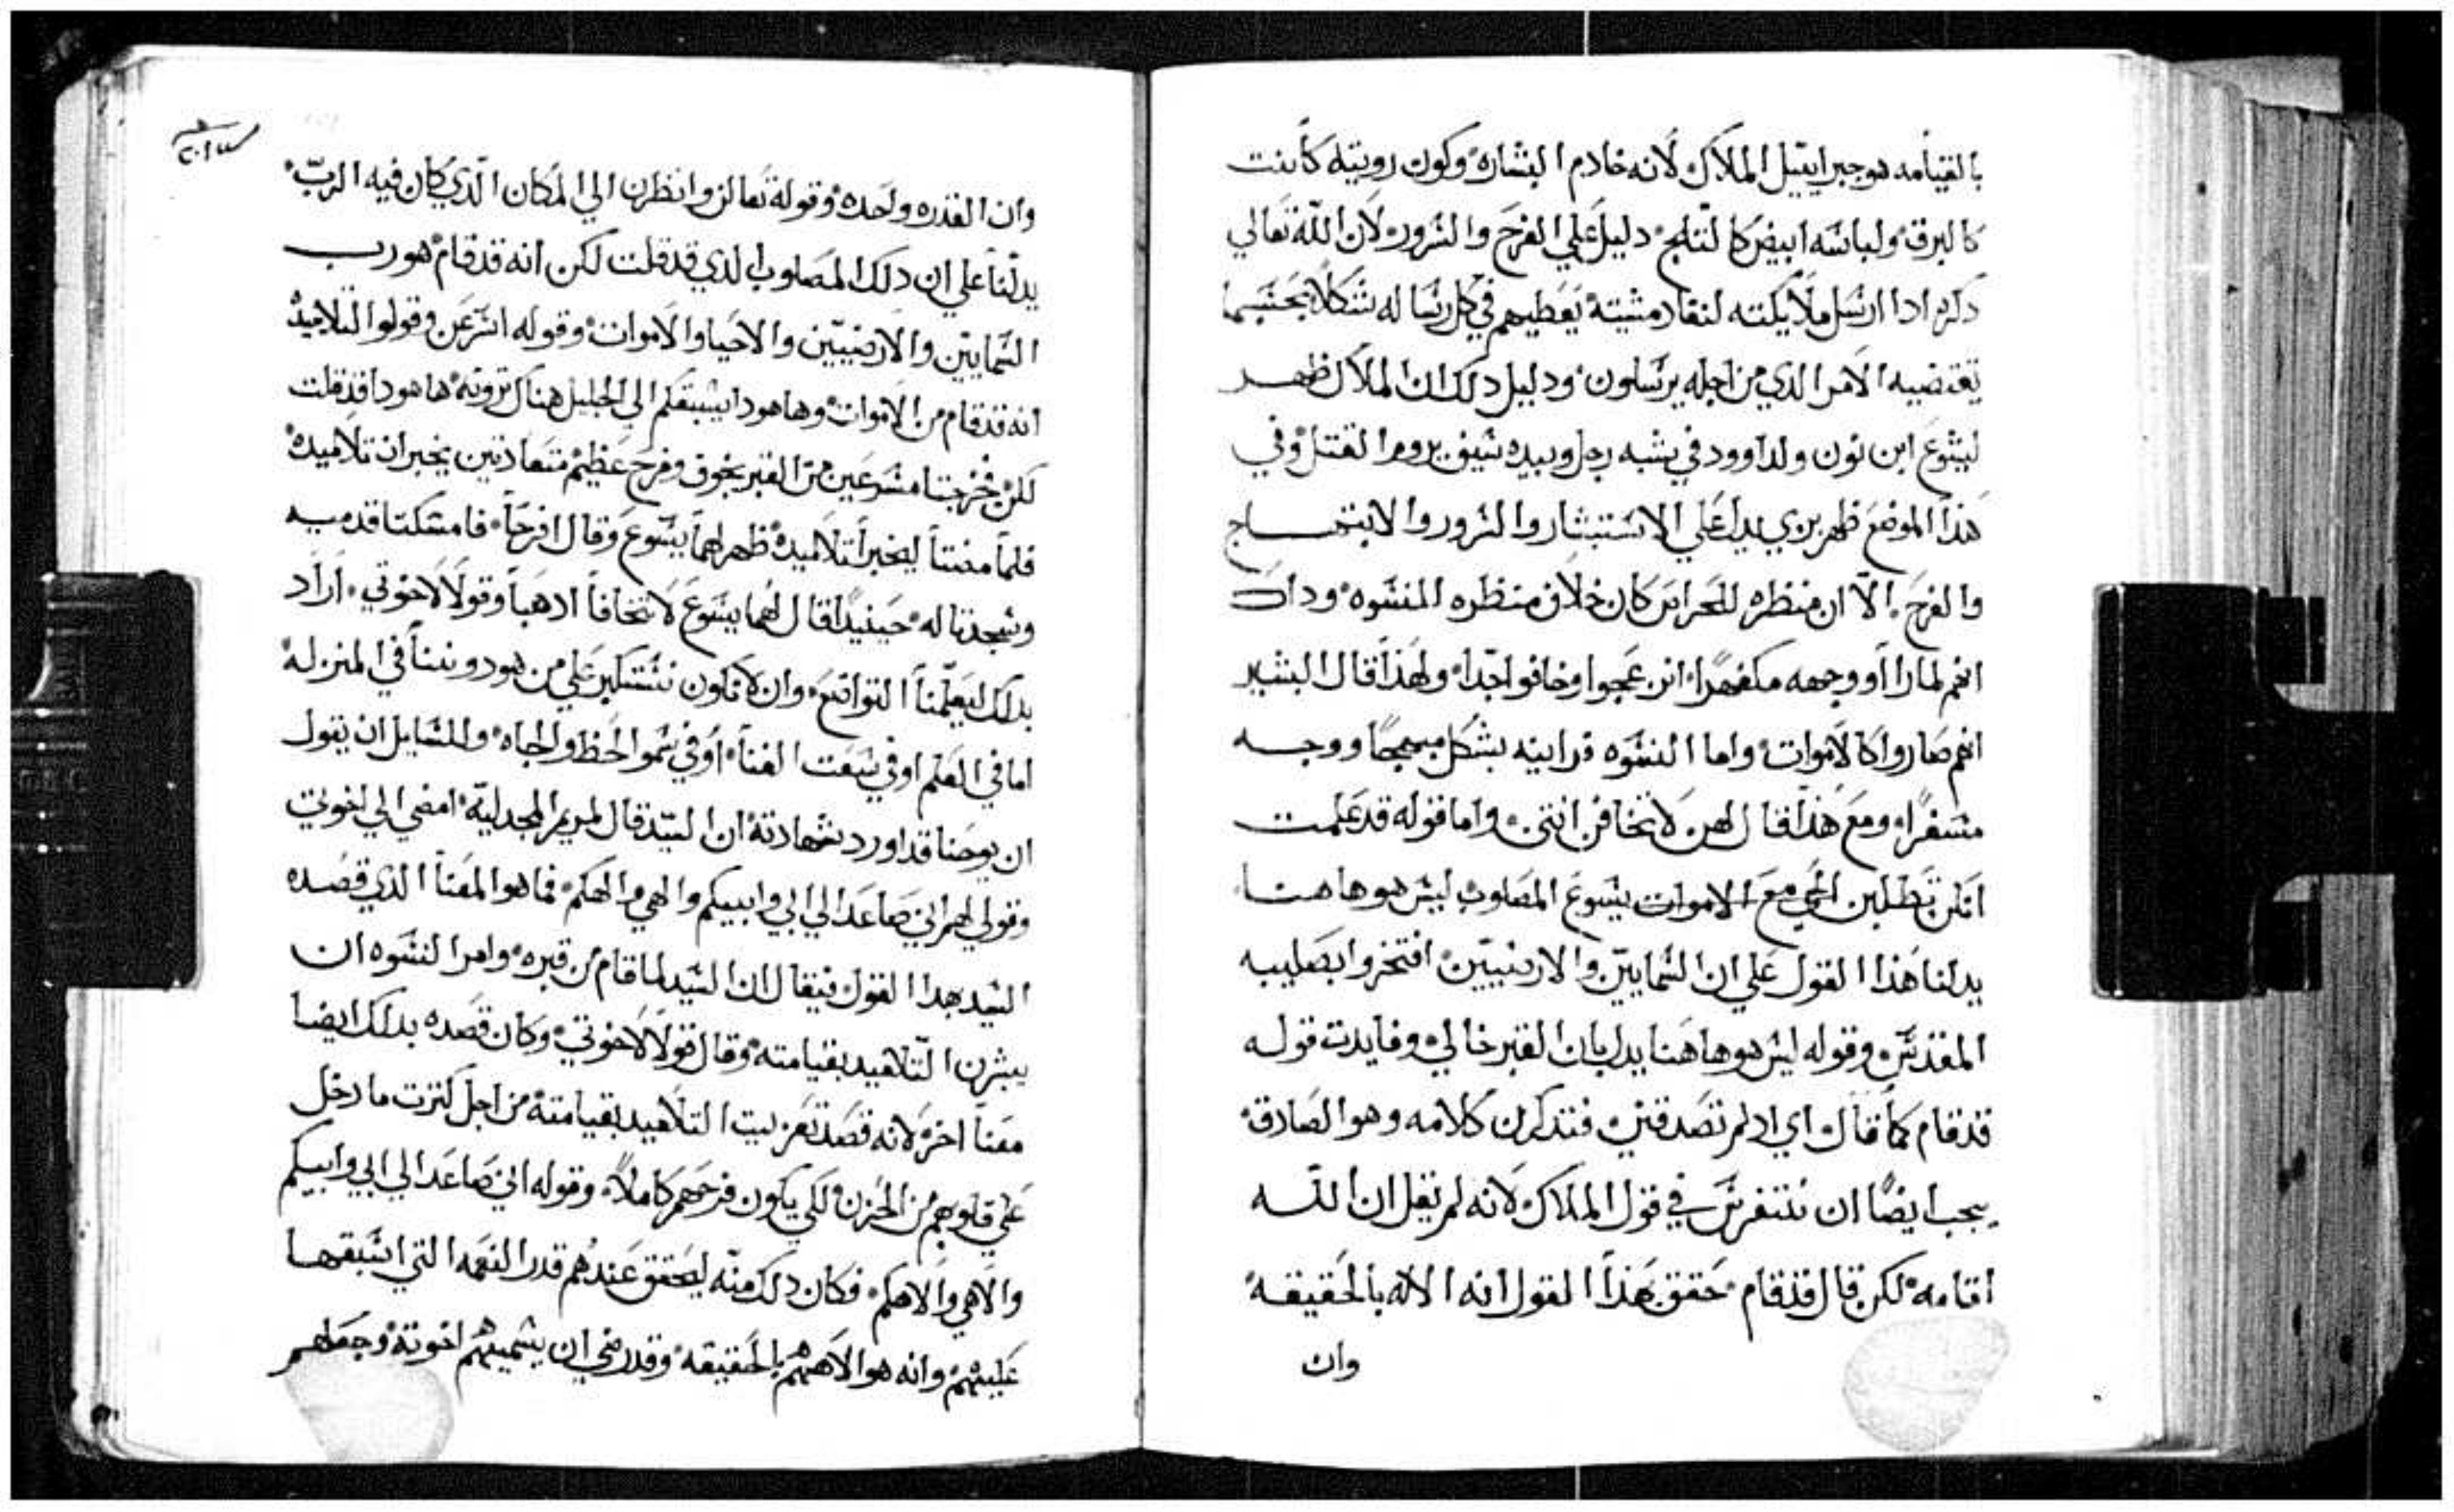 بالقيامه هو جبراييل الملاك لانه خادم البشاره وكون رويته كانت
كالبرق ولباسه ابيض كالثلج دليل علي الفرح والسرور لان الله تعالي
دكره ادا ارسل ملايكته لنفاد مشيته يعطيهم في كل رساله شكلا بحسبما
يقتضيه الامر الدي من اجله يرسلون ودليل دلك ان الملاك ظهر
ليشوع ابن نون ولداوود في شبه رجل وبيده سيف يروم القتل وفي
هدا الموضع ظهر بزي يدل علي الاستبشار والسرور والابتهاج
والفرح الا ان منظره للحراس كان خلاف منظره للنسوه وداك
انهم لما راو وجهه مكفهرا انزعجوا وخافوا جدا ولهدا قال البشير
انهم صاروا كالاموات واما النسوه فراينه بشكل مبهجا ووجه
مسفرا ومع هدا قال لهن لا تخافن انتن واما قوله قد علمت
انكن تطلبن الحي مع الاموات يسوع المصلوب ليس هو هاهنا
يدلنا هدا القول علي ان السمايين والارضيين افتخروا بصليبه
المقدس وقوله ليس هو هاهنا يدل بان القبر خالي وفايدت قوله
قد قام كما قال اي اد لم تصدقنني فتدكرن كلامه وهو الصادق
يجب ايضا ان نتفرس في قول الملاك لانه لم يقل ان الله
اقامه لكن قال قد قام حقق بهدا القول انه الاله بالحقيقه
وان
وان القدره واحده وقوله تعالن وانظرن الي المكان الدي كان فيه الرب
يدلنا علي ان دلك المصلوب الدي قد قلت لكن انه قد قام هو رب
السمايين والارضيين والاحيا والاموات وقوله اسرعن وقولوا لتلاميده
انه قد قام من الاموات وها هودا يسبقكم الي الجليل هناك ترونه ها هودا قد قلت
لكن فخرجتا مسرعين من القبر بخوف وفرح عظيم متعاديتين يخبران تلاميده
فلما مضتا ليخبرا تلاميده ظهر لهما يسوع وقال افرحا فامسكتا قدميه
وسجدتا له حينيدا قال لهما يسوع لا تخافا ادهبا وقولا لاخوتي اراد
بدلك ليعلمنا التواضع وان لا نكون نستكبر علي من هو دوننا في المنزله
اما في العلم او في سعت الغنا او في سمو الحظ والجاه وللسايل ان يقول
ان يوحنا قد اورد شهادته ان السيد قال لمريم المجدليه امضي الي اخوتي
وقولي لهم اني صاعدا الي ابي وابيكم والهي والهكم فما هو المعنا الدي قصده
السيد بهدا القول فيقال ان السيد لما قام من قبره وامر النسوه ان
يبشرن التلاميد بقيامته وقال قولا لاخوتي وكان قصده بدلك ايضا
معنا اخر لانه قصد تعزيت التلاميد بقيامته من اجل كترت ما دخل
علي قلوبهم من الحزن ولكي يكون فرحهم كاملا وقوله اني صاعدا الي ابي وابيكم
والاهي والاهكم فكان دلك منه ليحقق عندهم قدر النعمه التي اسبقها
عليهم وانه هو الاههم بالحقيقه وقد رضي ان يسميهم اخوته وجعلهم